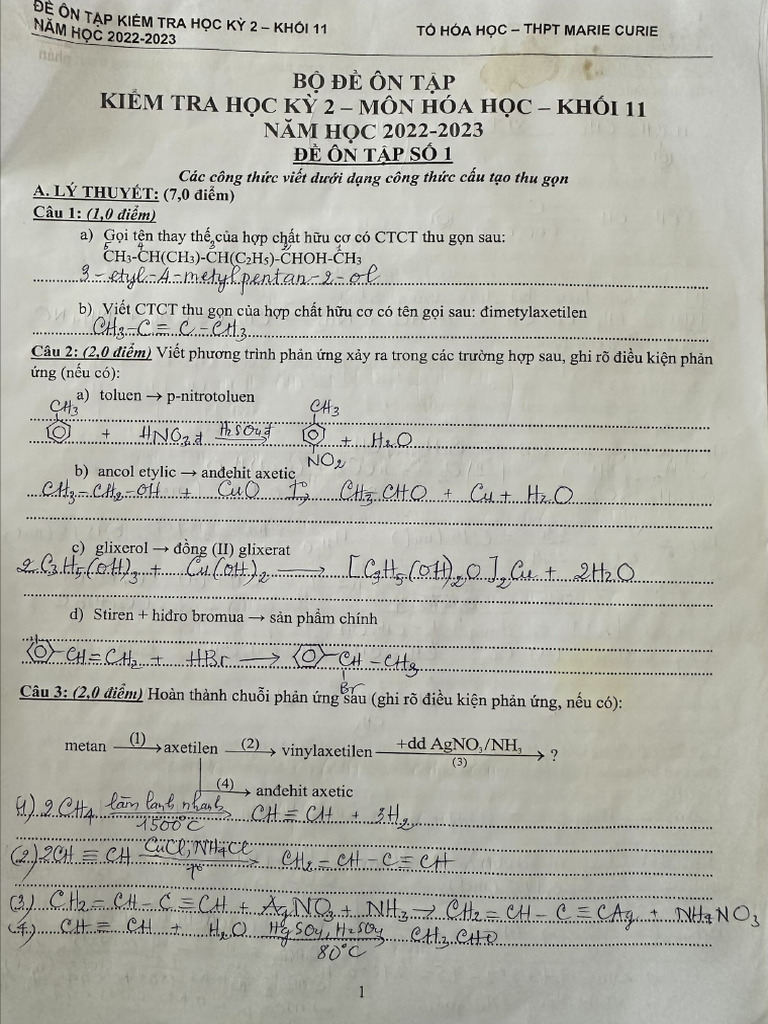 ĐỀ ÔN TẬP KIỂM TRA HỌC KỲ 2 – KHỐI 11
NĂM HỌC 2022-2023
TỔ HÓA HỌC – THPT MARIE CURIE
BỘ ĐỀ ÔN TẬP
KIỂM TRA HỌC KỲ 2 – MÔN HÓA HỌC – KHỐI 11
NĂM HỌC 2022-2023
ĐỀ ÔN TẬP SỐ 1
Các công thức viết dưới dạng công thức cấu tạo thu gọn
A. LÝ THUYẾT: (7,0 điểm)
Câu 1: (1,0 điểm)
a) Gọi tên thay thế của hợp chất hữu cơ có CTCT thu gọn sau:
5 4 3 2 1
CH3-CH(CH3)-CH(C2H5)-CHOH-CH3
3-etyl-4-metylpentan-2-ol
b) Viết CTCT thu gọn của hợp chất hữu cơ có tên gọi sau: đimetylaxetilen
CH3-C≡C-CH3
Câu 2: (2,0 điểm) Viết phương trình phản ứng xảy ra trong các trường hợp sau, ghi rõ điều kiện phản
ứng (nếu có):
a) toluen → p-nitrotoluen
CH3 CH3
+ HNO3đ H2SO4đ → + H2O
NO2
b) ancol etylic → anđehit axetic
CH3-CH2-OH + CuO t° → CH3-CHO + Cu + H2O
c) glixerol → đồng (II) glixerat
2C3H5(OH)3 + Cu(OH)2 → [C3H5(OH)2O]2Cu + 2H2O
d) Stiren + hiđro bromua → sản phẩm chính
CH=CH2 + HBr → CH-CH3
Br
Câu 3: (2,0 điểm) Hoàn thành chuỗi phản ứng sau (ghi rõ điều kiện phản ứng, nếu có):
metan (1)→ axetilen (2)→ vinylaxetilen +dd AgNO3/NH3 (3)→ ?
(4)→ anđehit axetic
(1) 2CH4 làm lạnh nhanh 1500°C → CH≡CH + 3H2
(2) 2CH≡CH CuCl, NH4Cl t° → CH2=CH-C≡CH
(3) CH2=CH-C≡CH + AgNO3 + NH3 → CH2=CH-C≡CAg + NH4NO3
(4) CH≡CH + H2O HgSO4, H2SO4 80°C → CH3CHO
1